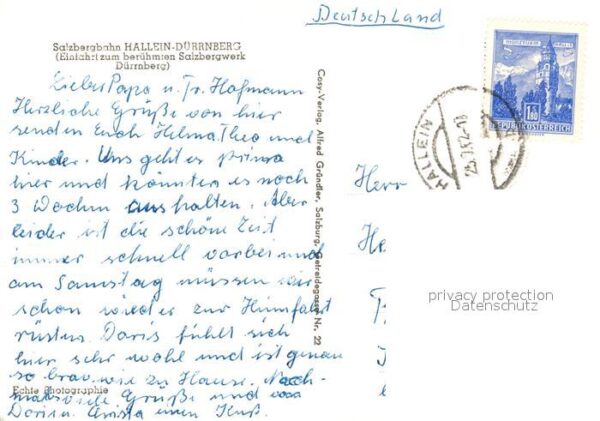 Deutschland
Salzbergbahn HALLEIN-DÜRRNBERG
(Einfahrt zum berühmten Salzbergwerk
Dürrnberg)
Lieber Papa u. Fr. Hofmann
Herzliche Grüße von hier
senden Euch Helma, Theo und
Kinder. Uns geht es prima
hier und könnten es noch
3 Wochen aushalten. Aber
leider ist die schöne Zeit
immer schnell vorbei und
am Samstag müssen wir
schon wieder zur Heimfahrt
rüsten. Doris fühlt sich
hier sehr wohl und ist genau
so brav wie zu Hause. Noch-
mals viele Grüße und von
Doris u. Christa einen Kuß.
Echte Photographie
Cosy-Verlag, Alfred Gründler, Salzburg, Getreidegasse Nr. 22
S
1.80
REPUBLIK ÖSTERREICH
HALLEIN
Herr
privacy protection
Datenschutz